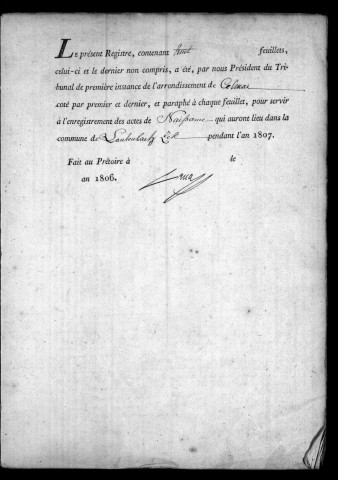 LE présent Registre, contenant huit feuillets,
celui-ci et le dernier non compris, a été, par nous Président du Tri-
bunal de première instance de l'arrondissement de Colmar
coté par premier et dernier, et paraphé à chaque feuillet, pour servir
à l'enregistrement des actes de Naissance qui auront lieu dans la
commune de pendant l'an 1807.
Fait au Prétoire à le
an 1806.